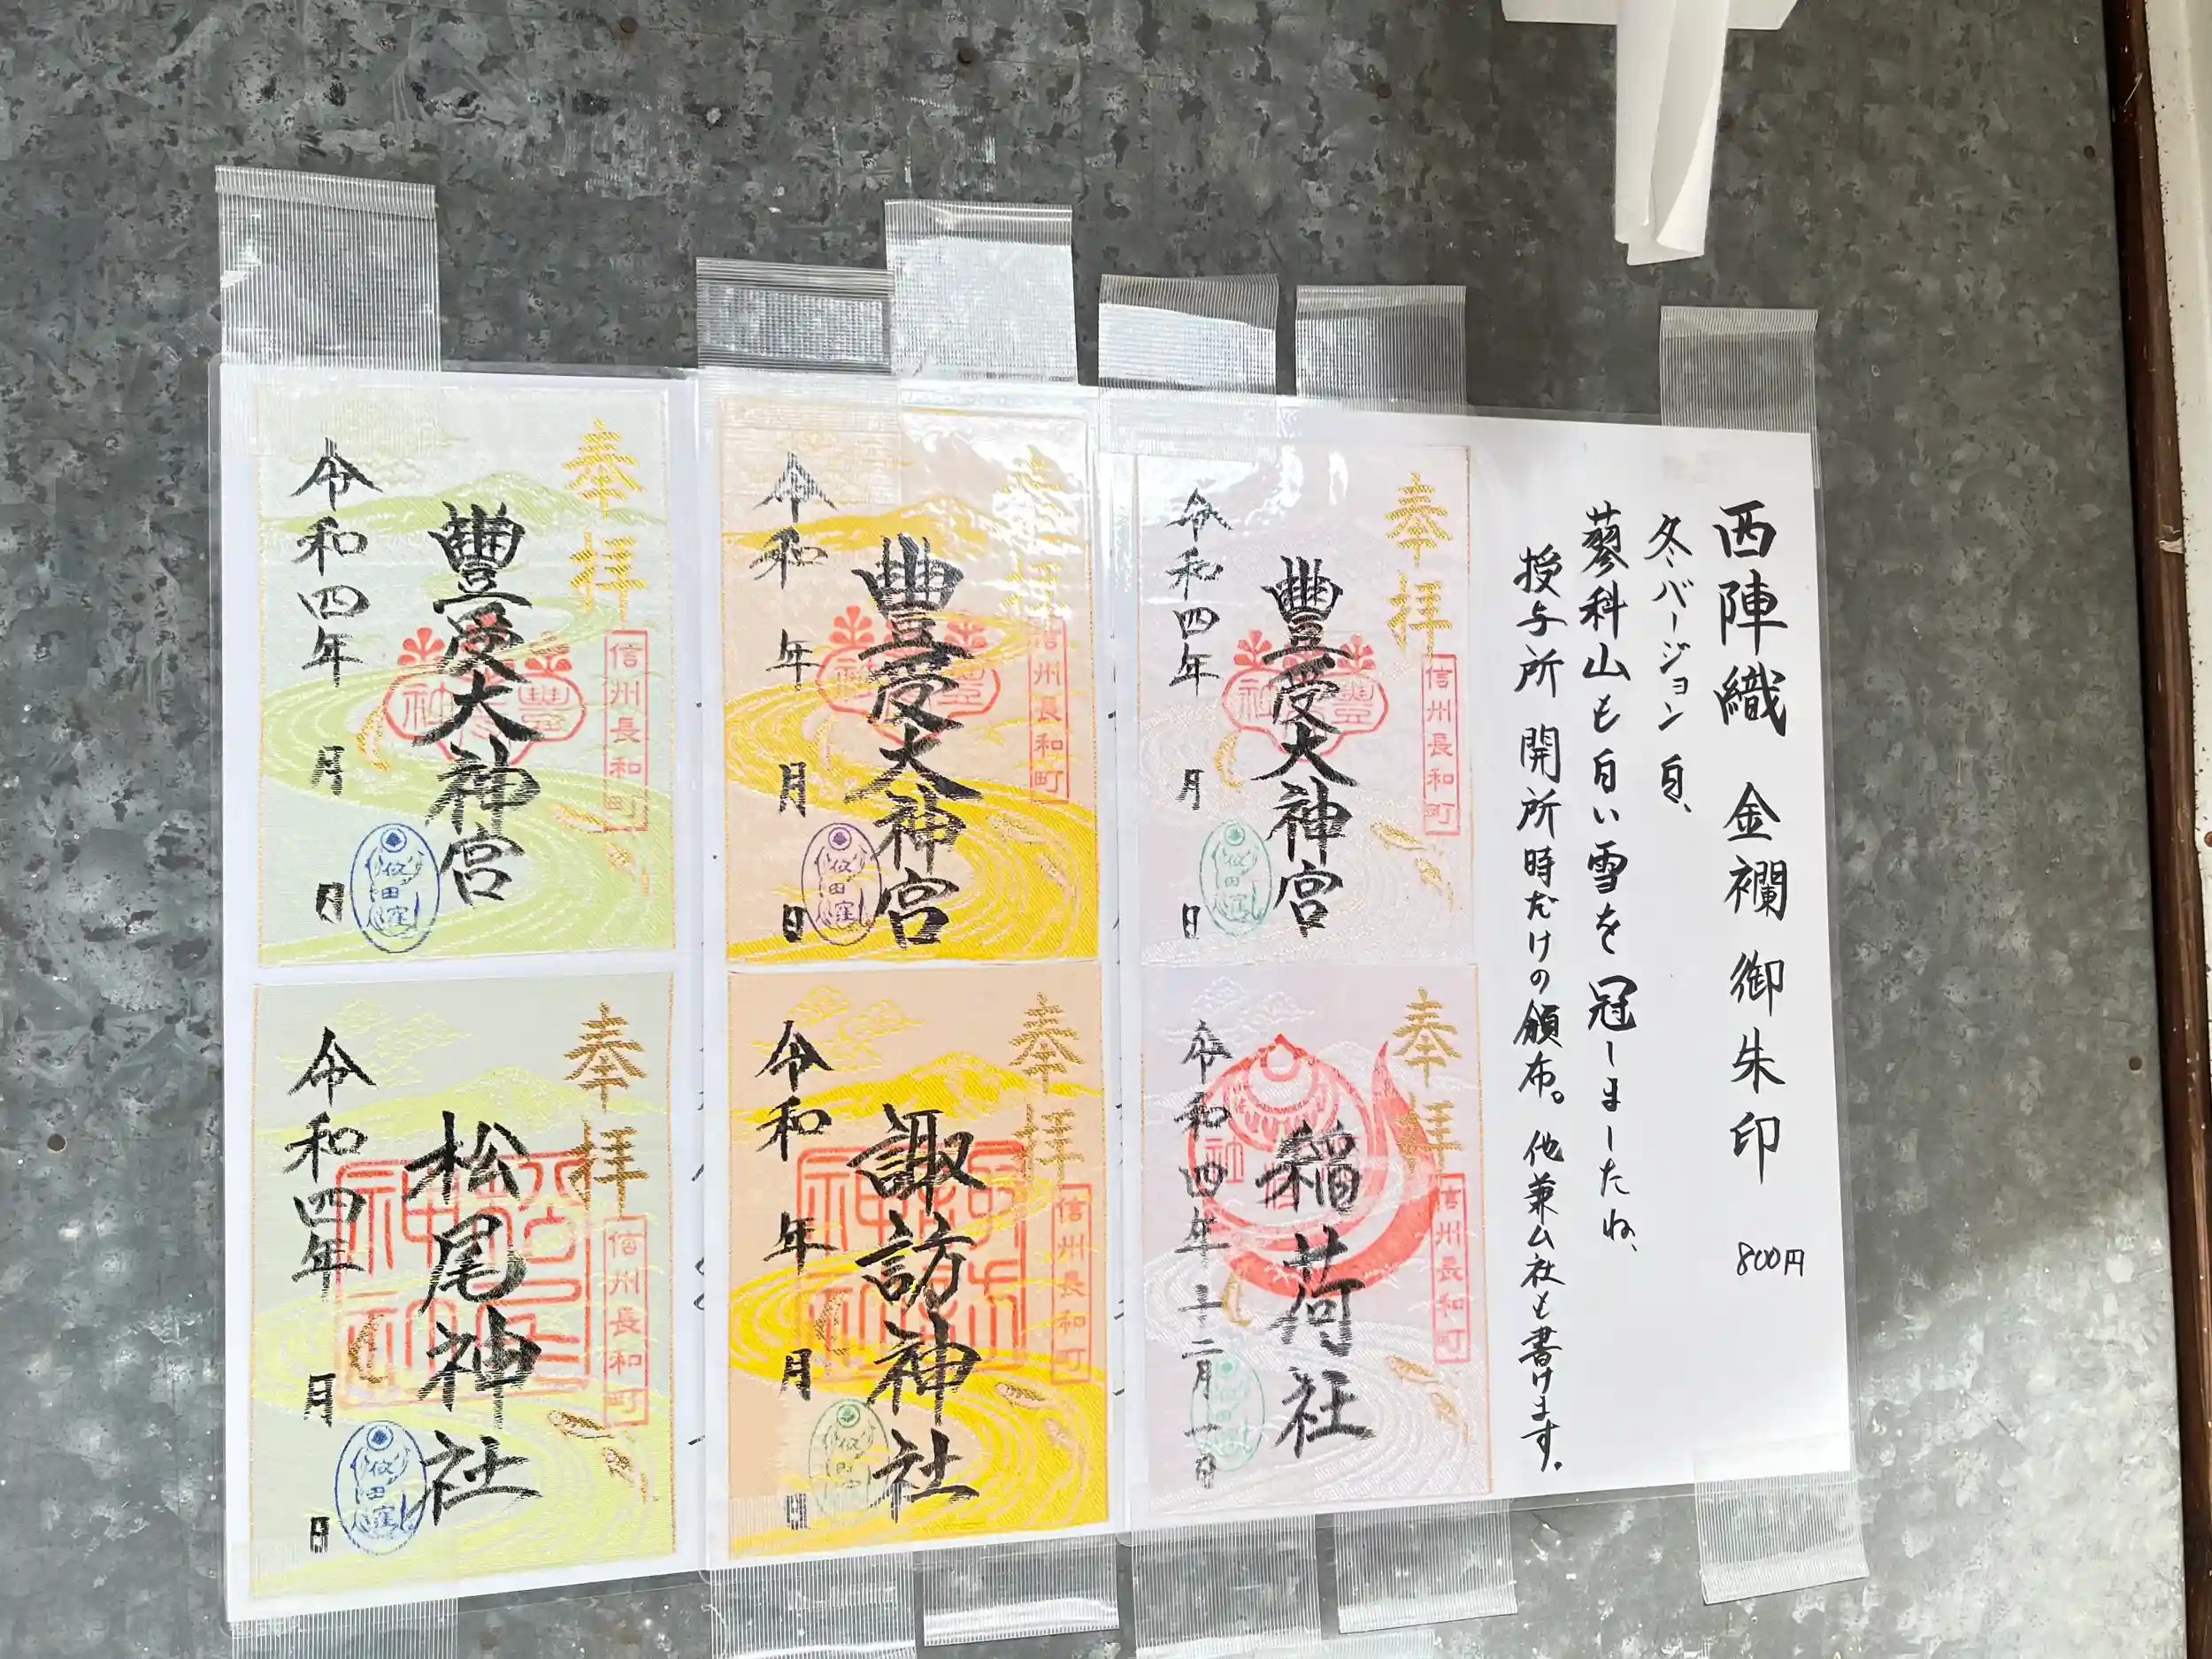 西陣織 金襴 御朱印 800円
冬バージョン 白、
蓼科山も白い雪を冠しましたね、
授与所 開所時だけの頒布。他兼ム社も書けます。
奉拝
信州長和町
豊受大神宮
令和四年 月 日
奉拝
信州長和町
稲荷社
令和四年十二月一日
奉拝
信州長和町
豊受大神宮
令和 年 月 日
奉拝
信州長和町
諏訪神社
令和 年 月 日
奉拝
信州長和町
豊受大神宮
令和四年 月 日
奉拝
信州長和町
松尾神社
令和四年 月 日